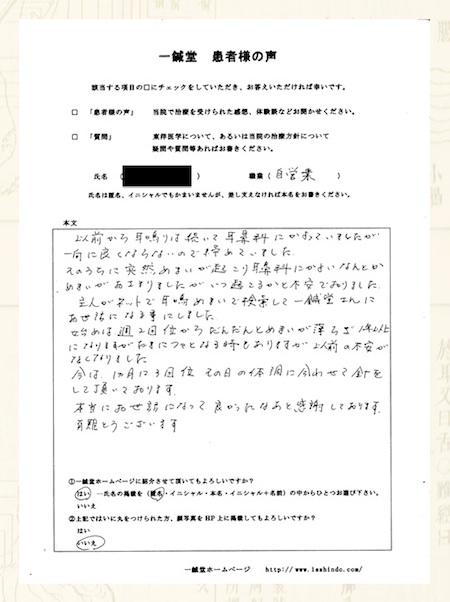 一鍼堂 患者様の声
該当する項目の口にチェックをしていただき、お答えいただければ幸いです。
□ 「患者様の声」 当院で治療を受けられた感想、体験談などお聞かせください。
□ 「質問」 東洋医学について、あるいは当院の治療方針について
疑問や質問等あればお書きください。
氏名 ( ) 職業 ( 自営業 )
氏名は匿名、イニシャルでもかまいませんが、差し支えなければ本名をお書きください。
本文
以前から耳鳴りは続いて耳鼻科にかよっていましたが
一向に良くならないので諦めていました。
そのうちに突然めまいが起こり耳鼻科にかよいなんとか
めまいがおさまりましたがいつ起こるかと不安でおりました。
主人がネットで耳鳴めまいで検索して一鍼堂さんに
お世話になる事にしました。
始めは週2回位からだんだんとめまいが薄らぎ 1年以上
になりますがたまにフワとなる時もありますが以前の不安が
なくなりました。
今は、1カ月に3回位 その日の体調に合わせて針を
して頂いております。
本当にお世話になって良かったなあと感謝しております。
有難とうございます
①一鍼堂ホームページに紹介させて頂いてもよろしいですか？
はい －氏名の掲載を（匿名・イニシャル・本名・イニシャル＋名前）の中からひとつお選び下さい。
いいえ
②上記ではいに丸をつけられた方、顔写真を HP 上に掲載してもよろしいですか？
はい
いいえ
一鍼堂ホームページ http://www.1sshindo.com/